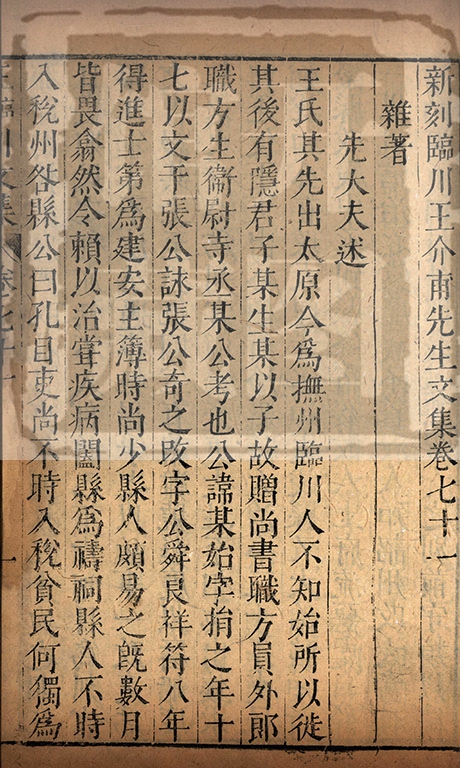 新刻臨川王介甫先生文集卷七十一
雜著
先大夫述
王氏其先出太原今爲撫州臨川人不知始所以徙
其後有隱君子某生某以子故贈尚書職方員外郎
職方生衞尉寺丞某公考也公諱某始字損之年十
七以文干張公詠張公奇之改字公舜良祥符八年
得進士第爲建安主簿時尚少縣人頗易之旣數月
皆畏翕然令賴以治嘗疾病闔縣爲禱祠縣人不時
入稅州咎縣公曰孔目吏尚不時入稅貧民何獨爲
王臨川文集 卷七十一 一